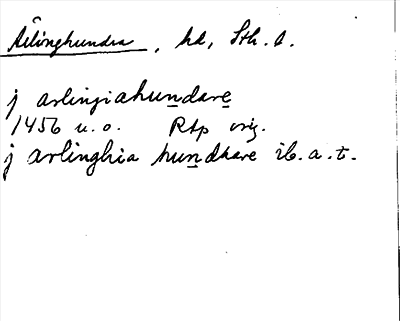 Ärlinghundra, hd, Sth. l.
j arlingiahundare
1456 u. o. Rtp orig.
j arlinghia hundhare ib. a. t.